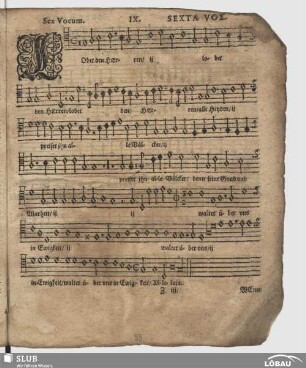 Sex Vocum. IX. SEXTA VOX.
LObet den Herren/ ij lo- bet
den Herren/lobet den Her- ren alle Heyden/ij
preiset jhn al- le Völ- cker/ij
preiset jhn alle Völcker/ denn seine Gnad und
Warheit/ ij ij waltet ü- ber uns
in Ewigkeit/ ij waltet ü- ber uns/ij
in Ewigkeit/waltet ü- ber uns in Ewig- keit/ Al-lelu-ia.
Z iij WEnn
SLUB
Wir führen Wissen.
LÖBAU